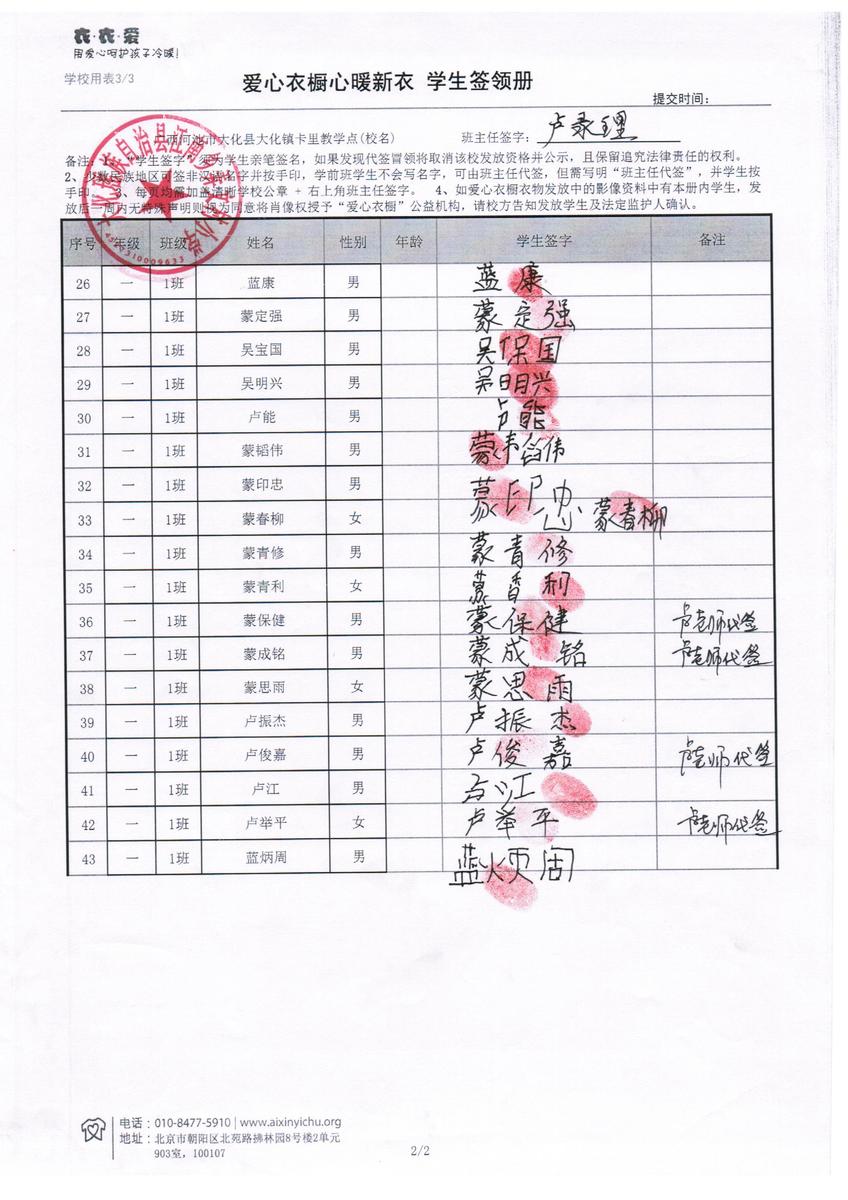 衣·衣·爱
用爱心呵护孩子冷暖!
学校用表3/3
爱心衣橱心暖新衣 学生签领册
提交时间:
广西河池市大化县大化镇卡里教学点(校名) 班主任签字:
备注:1、“学生签字”须为学生亲笔签名,如果发现代签冒领将取消该校发放资格并公示,且保留追究法律责任的权利。
2、少数民族地区可签非汉语名字并按手印,学前班学生不会写名字,可由班主任代签,但需写明“班主任代签”,并学生按
手印。 3、每页均需加盖清晰学校公章 + 右上角班主任签字。 4、如爱心衣橱衣物发放中的影像资料中有本册内学生,发
放后一周内无特殊声明则视为同意将肖像权授予“爱心衣橱”公益机构,请校方告知发放学生及法定监护人确认。
序号 年级 班级 姓名 性别 年龄 学生签字 备注
26 一 1班 蓝康 男 蓝康
27 一 1班 蒙定强 男 蒙定强
28 一 1班 吴宝国 男 吴保国
29 一 1班 吴明兴 男 吴明兴
30 一 1班 卢能 男 卢能
31 一 1班 蒙韬伟 男 蒙韬伟
32 一 1班 蒙印忠 男 蒙印忠
33 一 1班 蒙春柳 女 蒙春柳
34 一 1班 蒙青修 男 蒙青修
35 一 1班 蒙青利 女 蒙青利
36 一 1班 蒙保健 男 蒙保健 卢老师代签
37 一 1班 蒙成铭 男 蒙成铭 卢老师代签
38 一 1班 蒙思雨 女 蒙思雨
39 一 1班 卢振杰 男 卢振杰
40 一 1班 卢俊嘉 男 卢俊嘉 卢老师代签
41 一 1班 卢江 男 卢江
42 一 1班 卢举平 女 卢举平 卢老师代签
43 一 1班 蓝炳周 男 蓝炳周
电话:010-8477-5910 | www.aixinyichu.org
地址:北京市朝阳区北苑路拂林园8号楼2单元
903室,100107
2/2